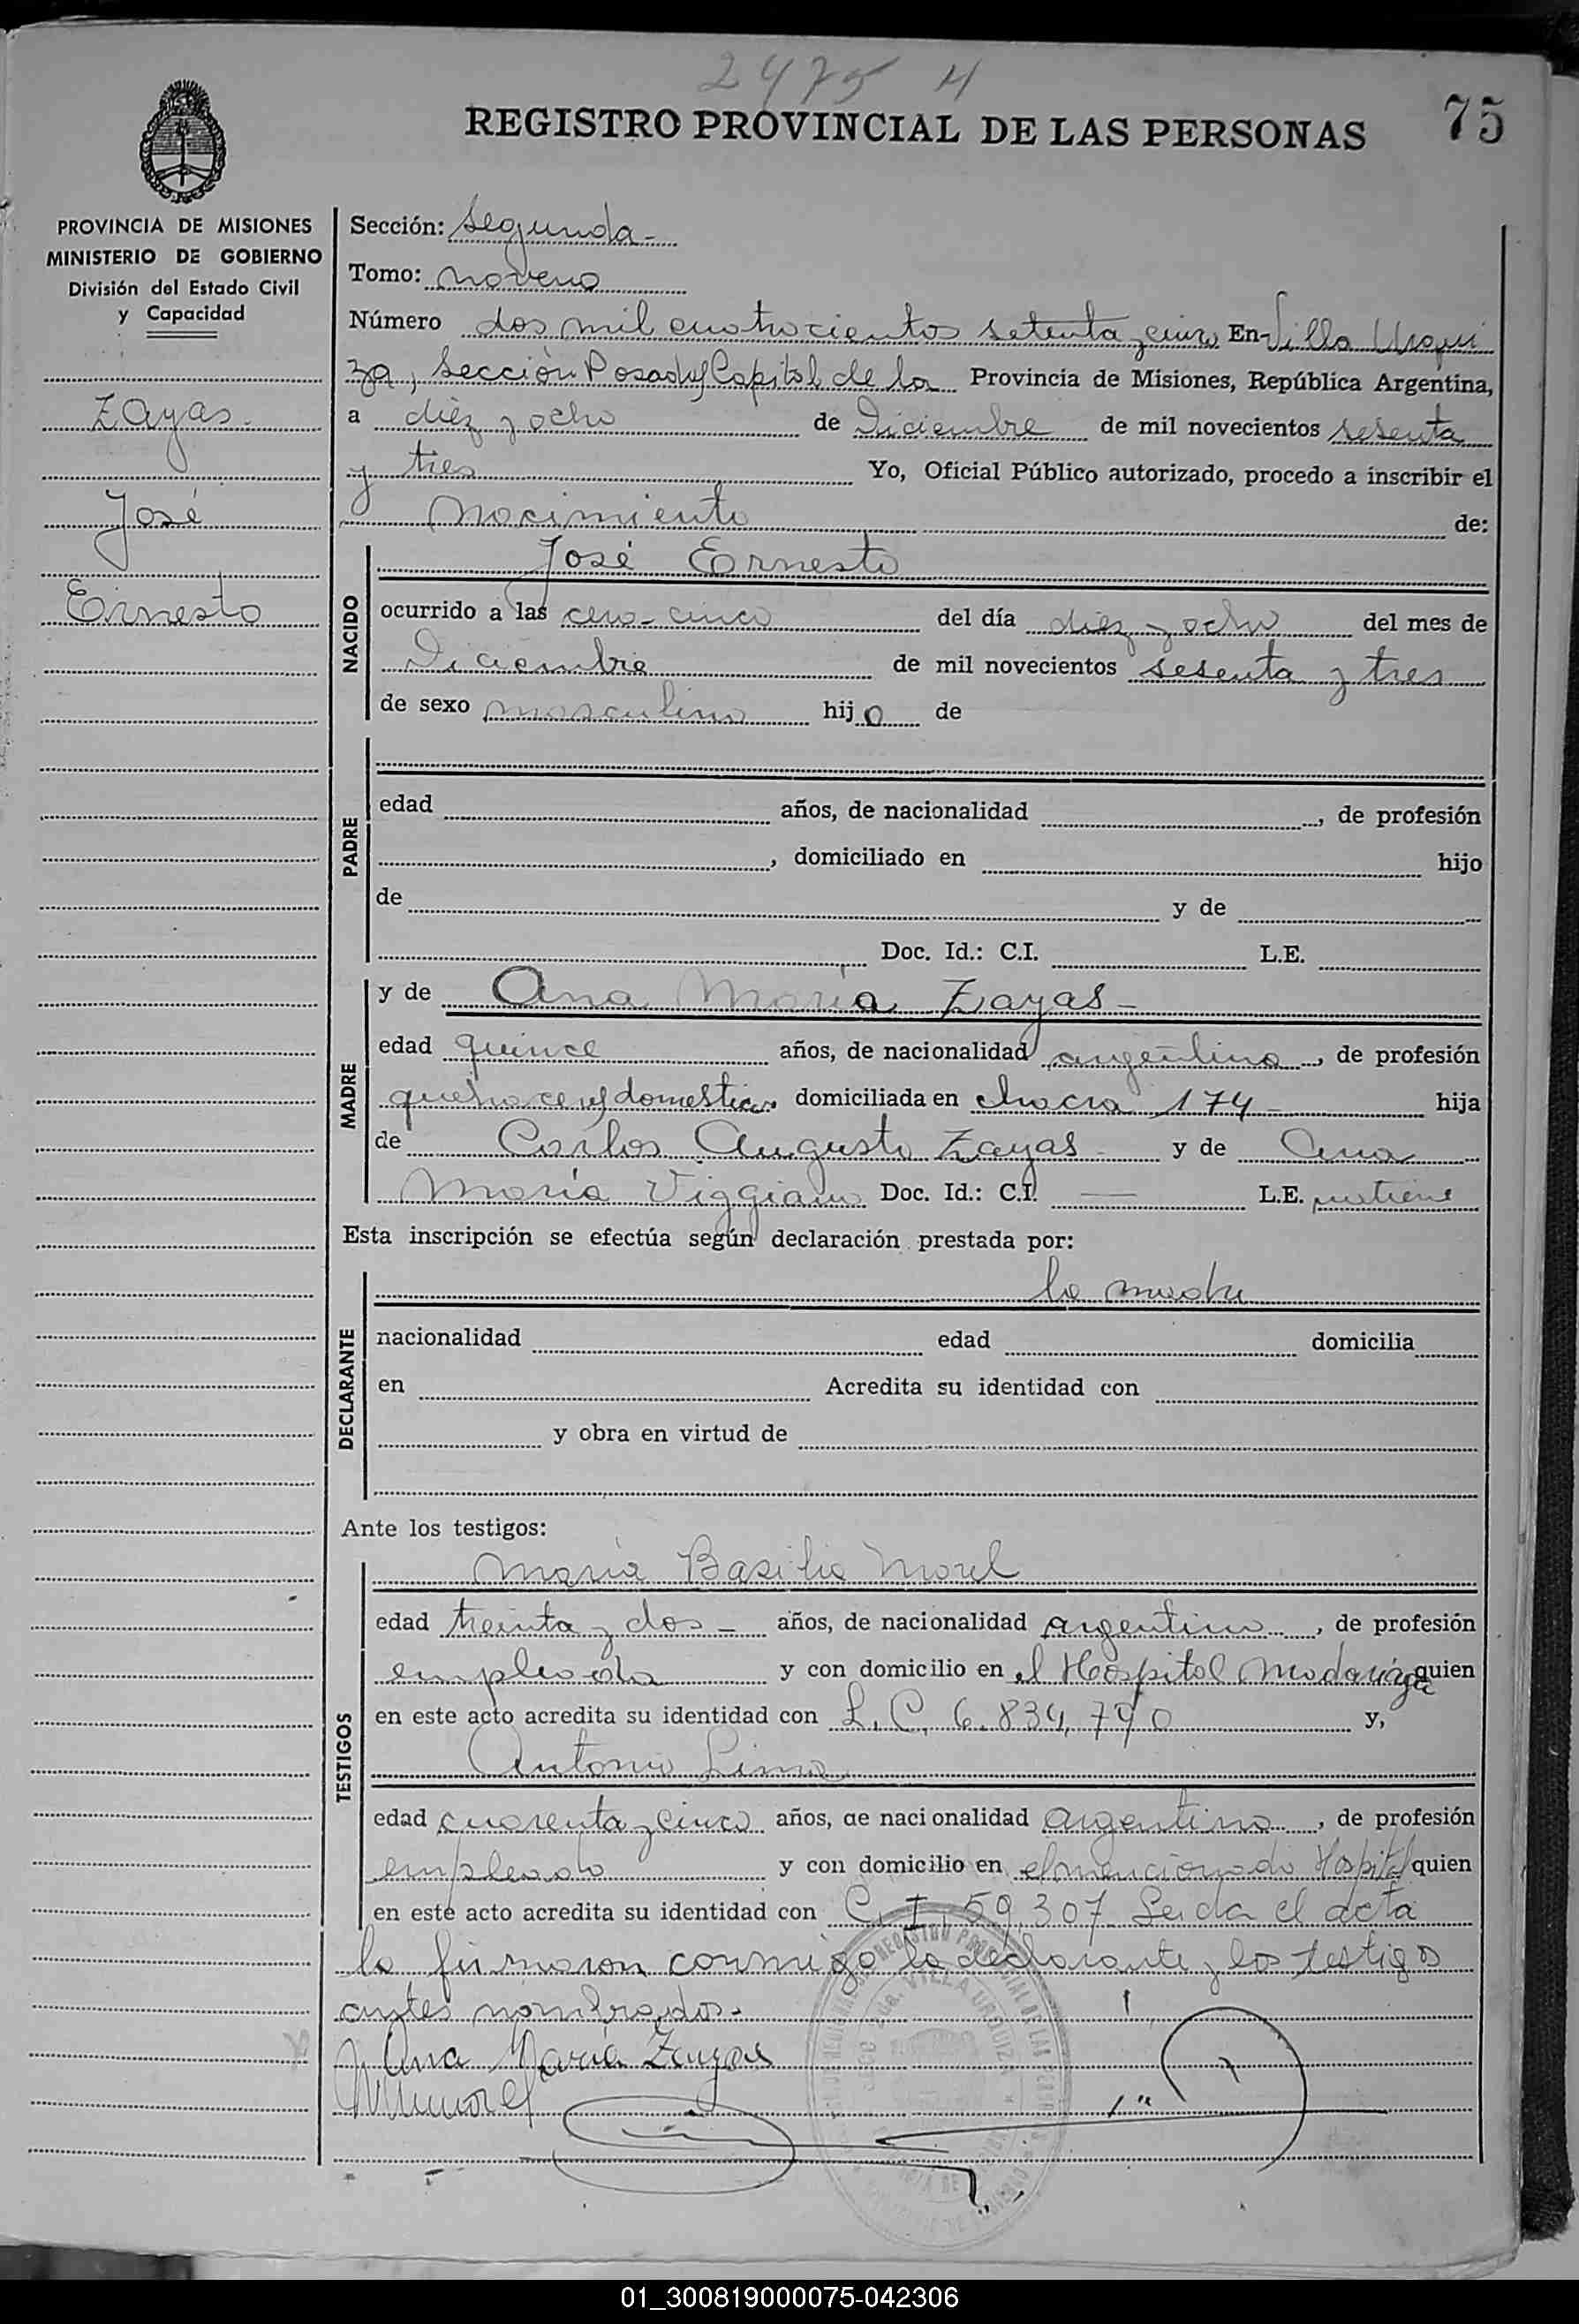 2475 H
REGISTRO PROVINCIAL DE LAS PERSONAS
75
PROVINCIA DE MISIONES
MINISTERIO DE GOBIERNO
División del Estado Civil
y Capacidad
Zayas.
José
Ernesto
Sección: Segunda-
Tomo: noveno
Número dos mil cuatrocientos setenta y cinco En Villa Urqui
za, Sección Posadas Capital de la Provincia de Misiones, República Argentina,
a diez y ocho de Diciembre de mil novecientos sesenta
y tres Yo, Oficial Público autorizado, procedo a inscribir el
nacimiento de:
NACIDO
José Ernesto
ocurrido a las cero-cinco del día diez y ocho del mes de
Diciembre de mil novecientos sesenta y tres
de sexo masculino hijo de
PADRE
edad años, de nacionalidad , de profesión
, domiciliado en hijo
de y de
Doc. Id.: C.I. L.E.
MADRE
y de Ana María Zayas-
edad quince años, de nacionalidad argentina, de profesión
quehaceres domesticos domiciliada en chacra 174- hija
de Carlos Augusto Zayas y de Ana
María Viggiano Doc. Id.: C.I. — L.E. no tiene
Esta inscripción se efectúa según declaración prestada por:
DECLARANTE
la madre
nacionalidad edad domicilia
en Acredita su identidad con
y obra en virtud de
Ante los testigos:
TESTIGOS
María Basilia Morel
edad treinta y dos- años, de nacionalidad argentina, de profesión
empleada y con domicilio en el Hospital Madariaga quien
en este acto acredita su identidad con L.C. 6.834.790 y,
Antonio Lima
edad cuarenta y cinco años, de nacionalidad argentino, de profesión
empleado y con domicilio en el mencionado Hospital quien
en este acto acredita su identidad con C.I. 59.307. Leida el acta
la firmaron conmigo la declarante y los testigos
antes nombrados.-
Ana María Zayas
01_300819000075-042306